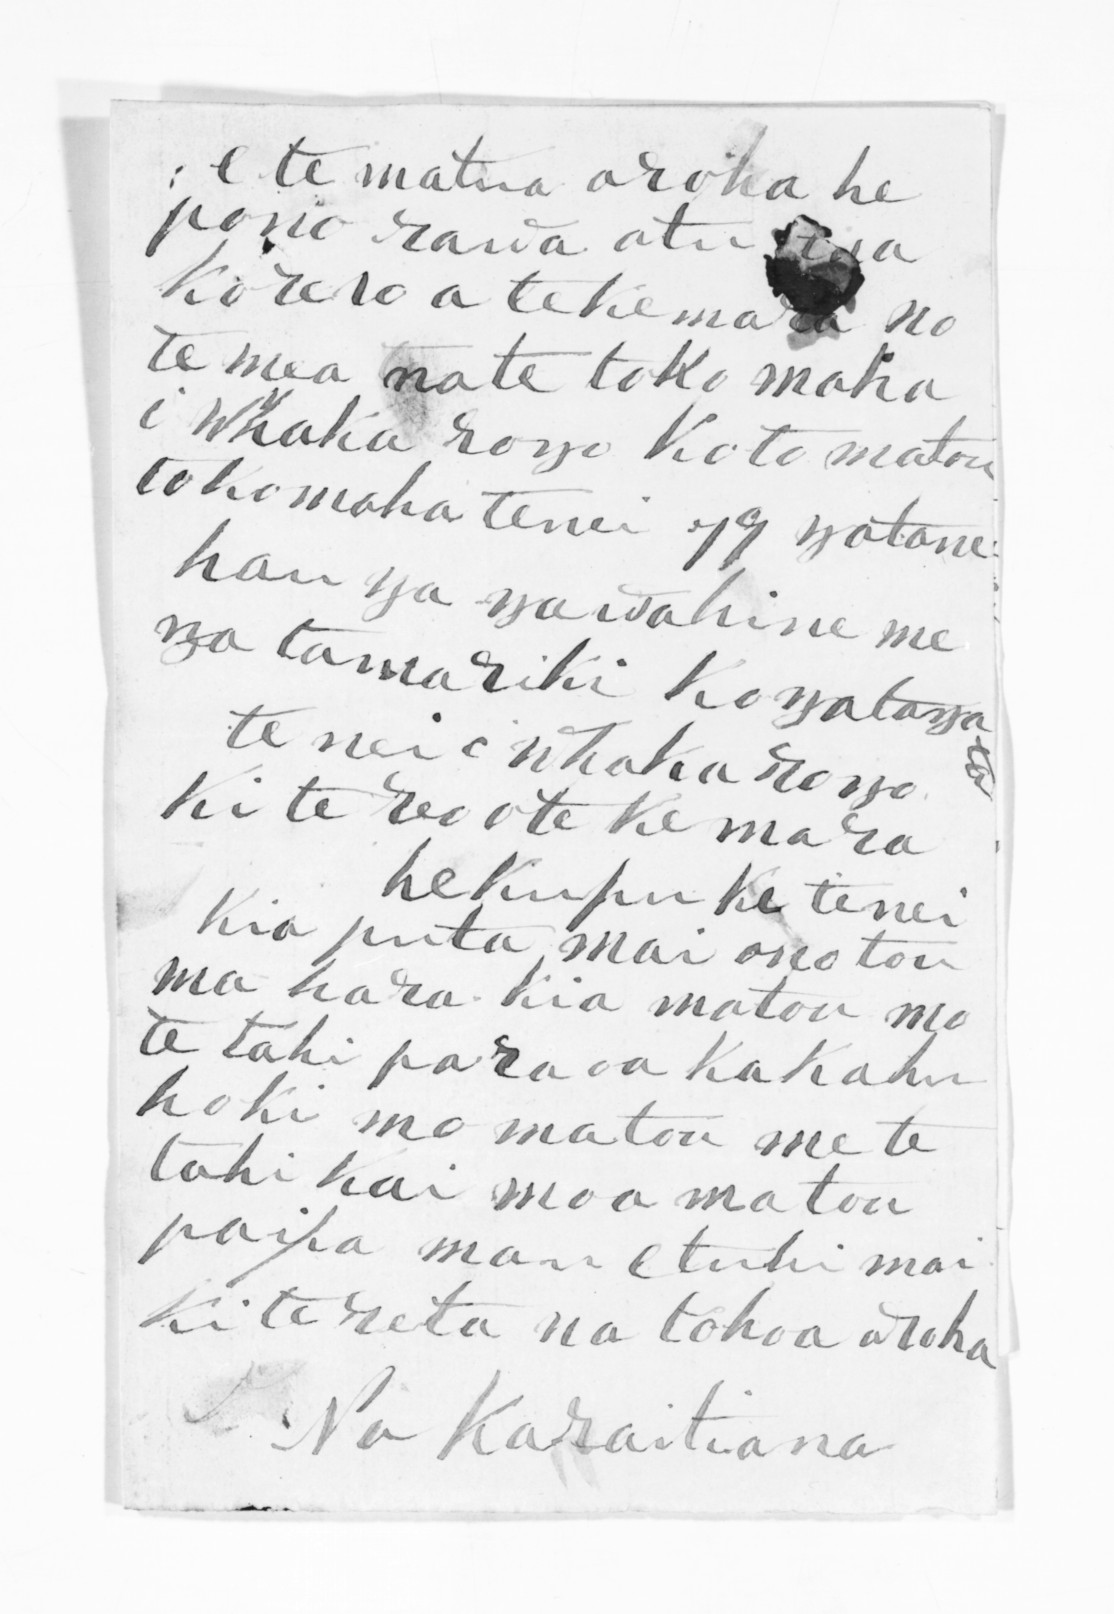 e te matua aroha he
pono rawa atu nga
korero a te kemara no
te mea na te toko maha
i Whaka rongo Ko to matou
tokomaha tenei 79 ngatane
hau nga ngawahine me
nga tamariki Ko ngatanga ta
te nei i Whaka rongo
Ki te reo ote Ke mara
he Kupu ke tenei
Kia puta mai ono tou
ma hara Kia matou mo
te tahi paraoa Kakahu
hoki mo matou me te
tahi Kai moa matou
paipa mau e tuhi mai
Ki te reta na tohoa aroha
Na Karaitiana